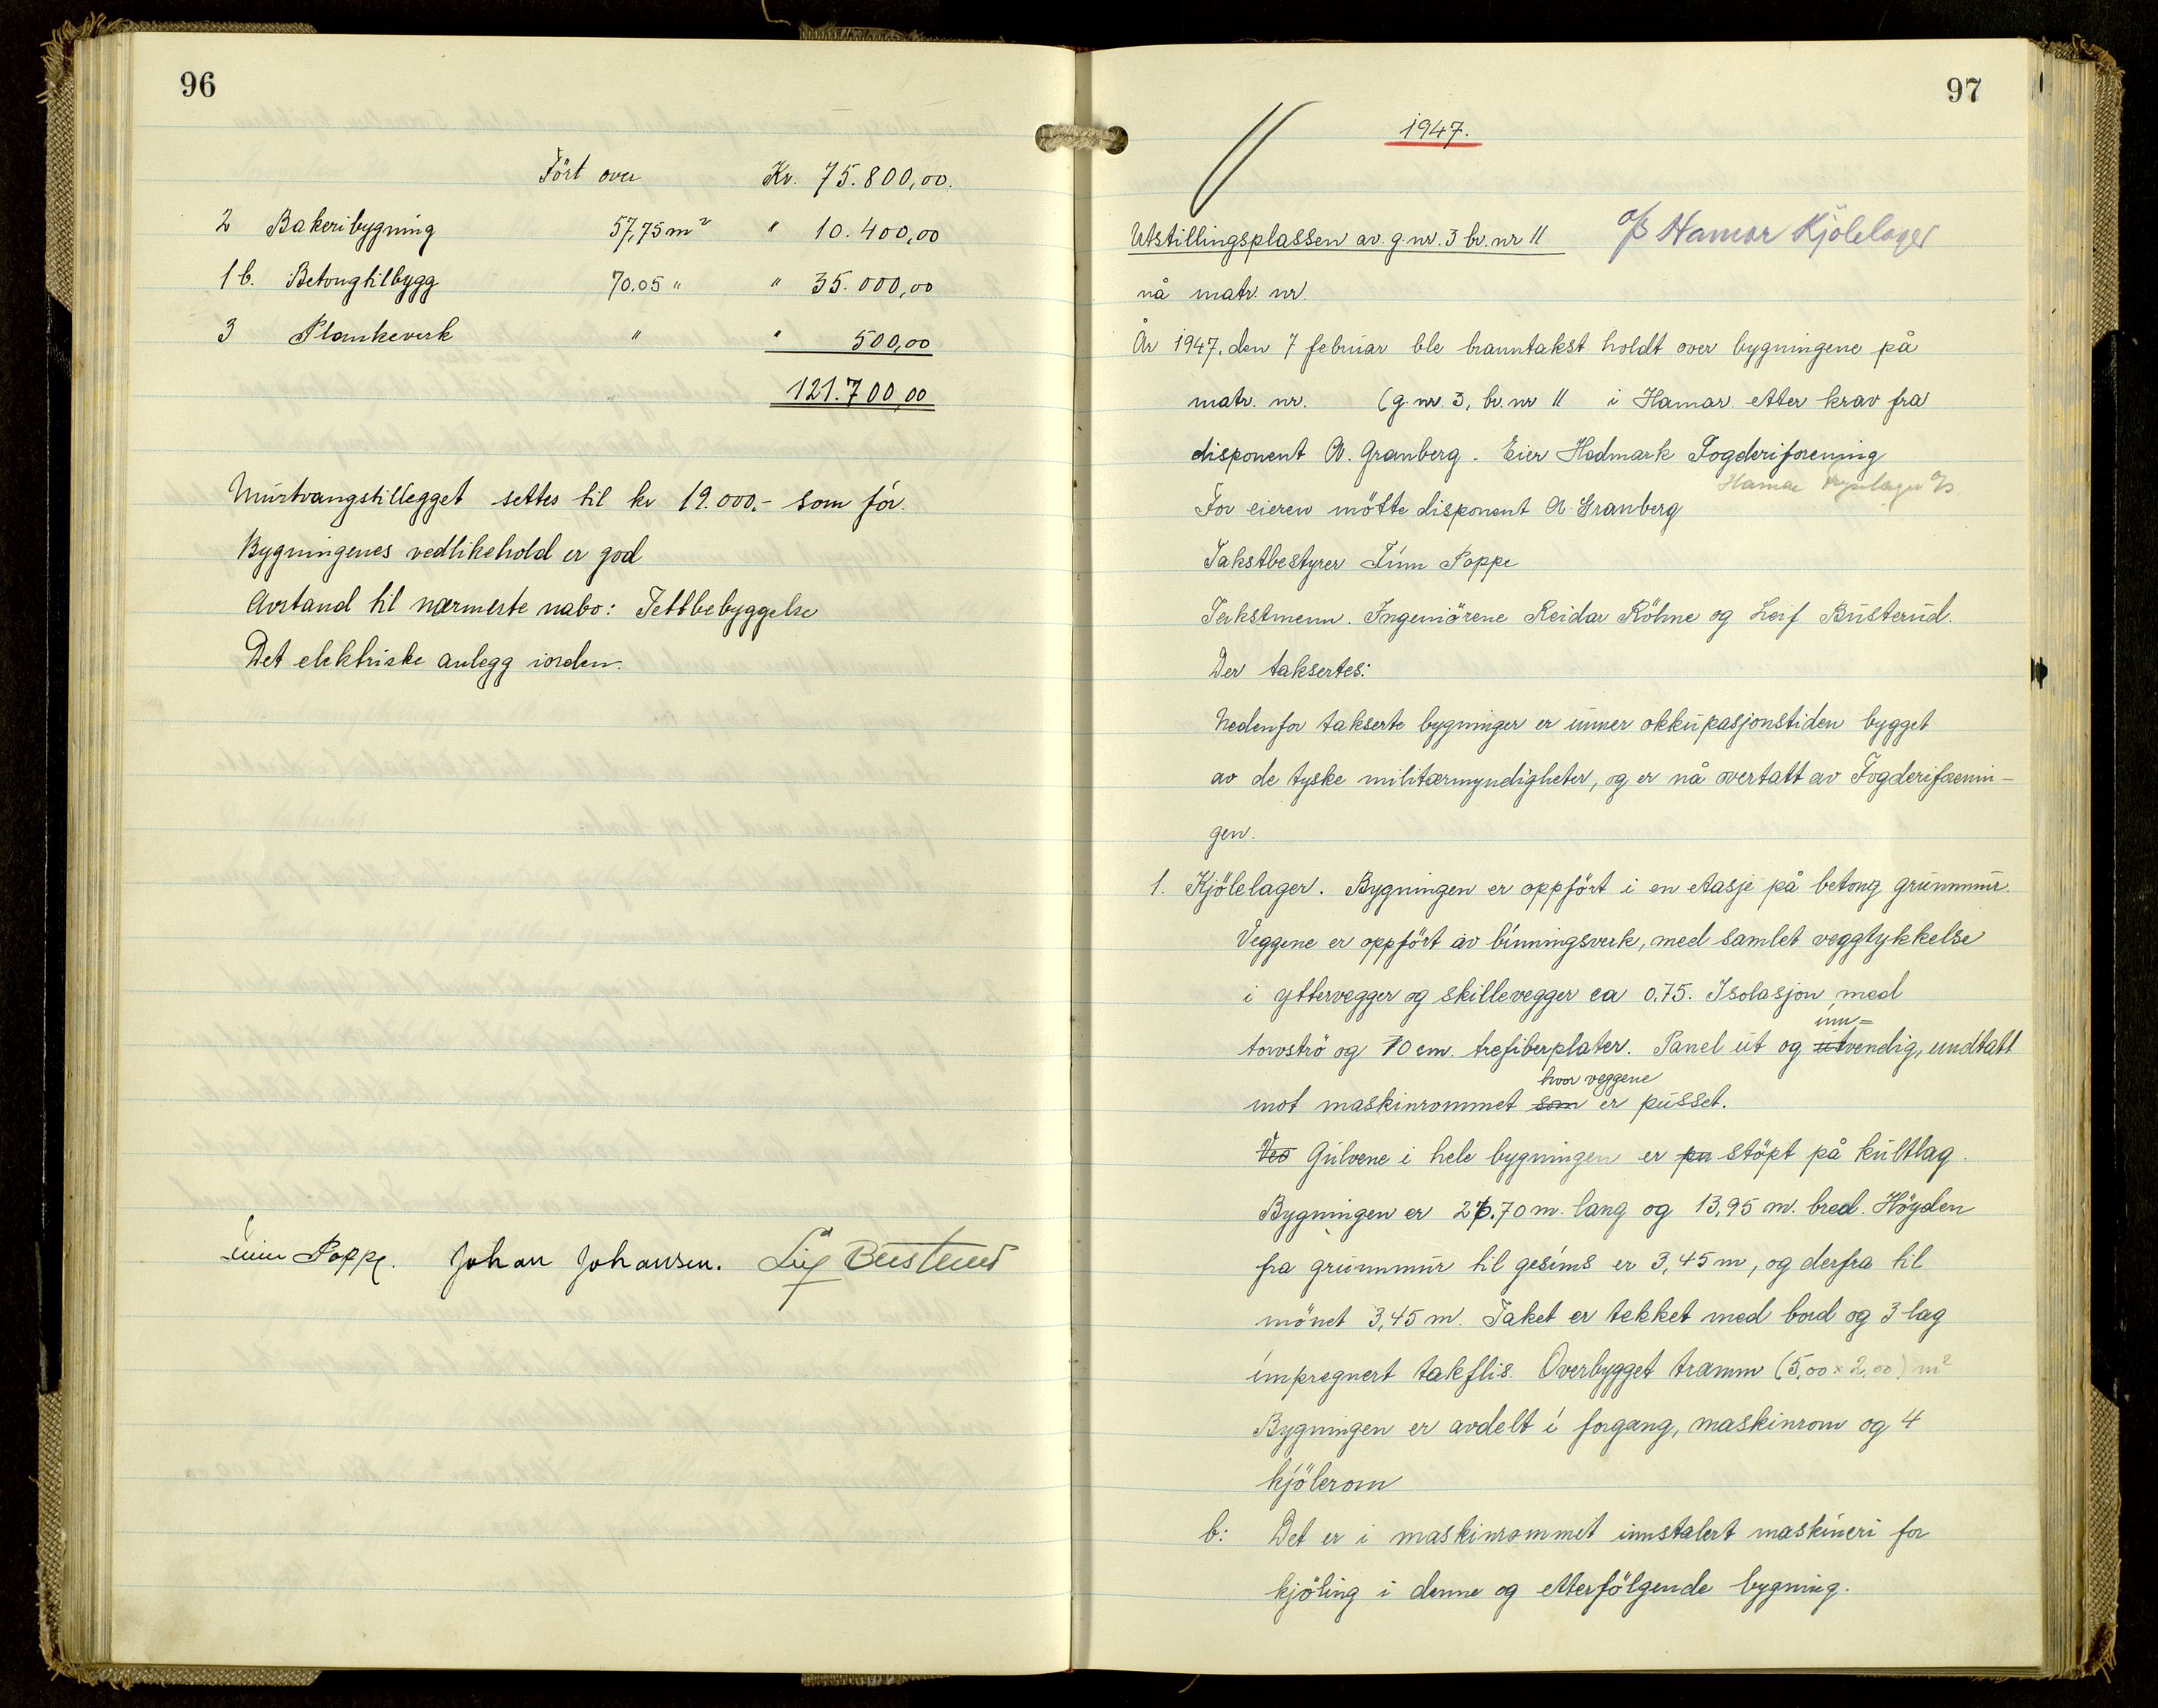 96
Ført over Kr. 75.800,00.
2 Bakeribygning 57,75 m² " 10.400,00
1 b. Betongtilbygg 70.05 " " 35.000,00
3 Plankeverk " " 500,00
121.700,00
Murtvangstillegget settes til kr 19.000,- som før.
Bygningenes vedlikehold er god
Avstand til nærmeste nabo: Tettbebyggelse
Det elektriske anlegg iorden.
Finn Poppe. Johan Johansen. Leif Busterud
97
1947.
Utstillingsplassen av g.nr. 3 br. nr 11 A/S Hamar Kjölelager
nå matr. nr.
År 1947. den 7 februar ble branntakst holdt over bygningene på
matr. nr. (g. nr. 3, br. nr 11 i Hamar etter krav fra
disponent A. Granberg. Eier Hedmark Fogderiforening
Hamar A/S
For eieren mötte disponent A. Granberg
Takstbestyrer Finn Poppe
Takstmenn. Ingeniörene Reidar Röhne og Leif Busterud.
Der taksertes:
Nedenfor takserte bygninger er unner okkupasjonstiden bygget
av de tyske militærmyndigheter, og er nå overtatt av Fogderiforenin-
gen.
1. Kjölelager. Bygningen er oppfört i en etasje på betong grunnmur.
Veggene er oppfört av binningsverk, med samlet veggtykkelse
i yttervegger og skillevegger ca 0.75. Isolasjon med
inn=
torvströ og 10 cm. trefiberplater. Panel ut og utvendig, undtatt
hvor veggene
mot maskinrommet som er pusset.
Ved Gulvene i hele bygningen er pu stöpt på kultlag.
Bygningen er 26.70 m. lang og 13,95 m. bred. Höyden
fra grunnmur til gesims er 3,45 m, og derfra til
mönet 3,45 m. Taket er tekket med bord og 3 lag
impregnert takflis. Overbygget tramm (5,00 × 2,00) m²
Bygningen er avdelt i forgang, maskinrom og 4
kjölerom
b: Det er i maskinrommet innstalert maskineri for
kjöling i denne og etterfölgende bygning.